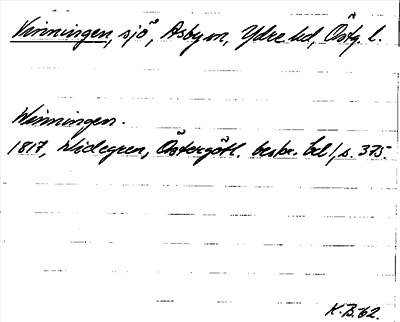 Vinningen, sjö, Asby sn, Ydre hd, Östg. l.
Winningen.
1817, Widegren, Östergötl. beskr. bd 1, s. 375.
K.B. 62.